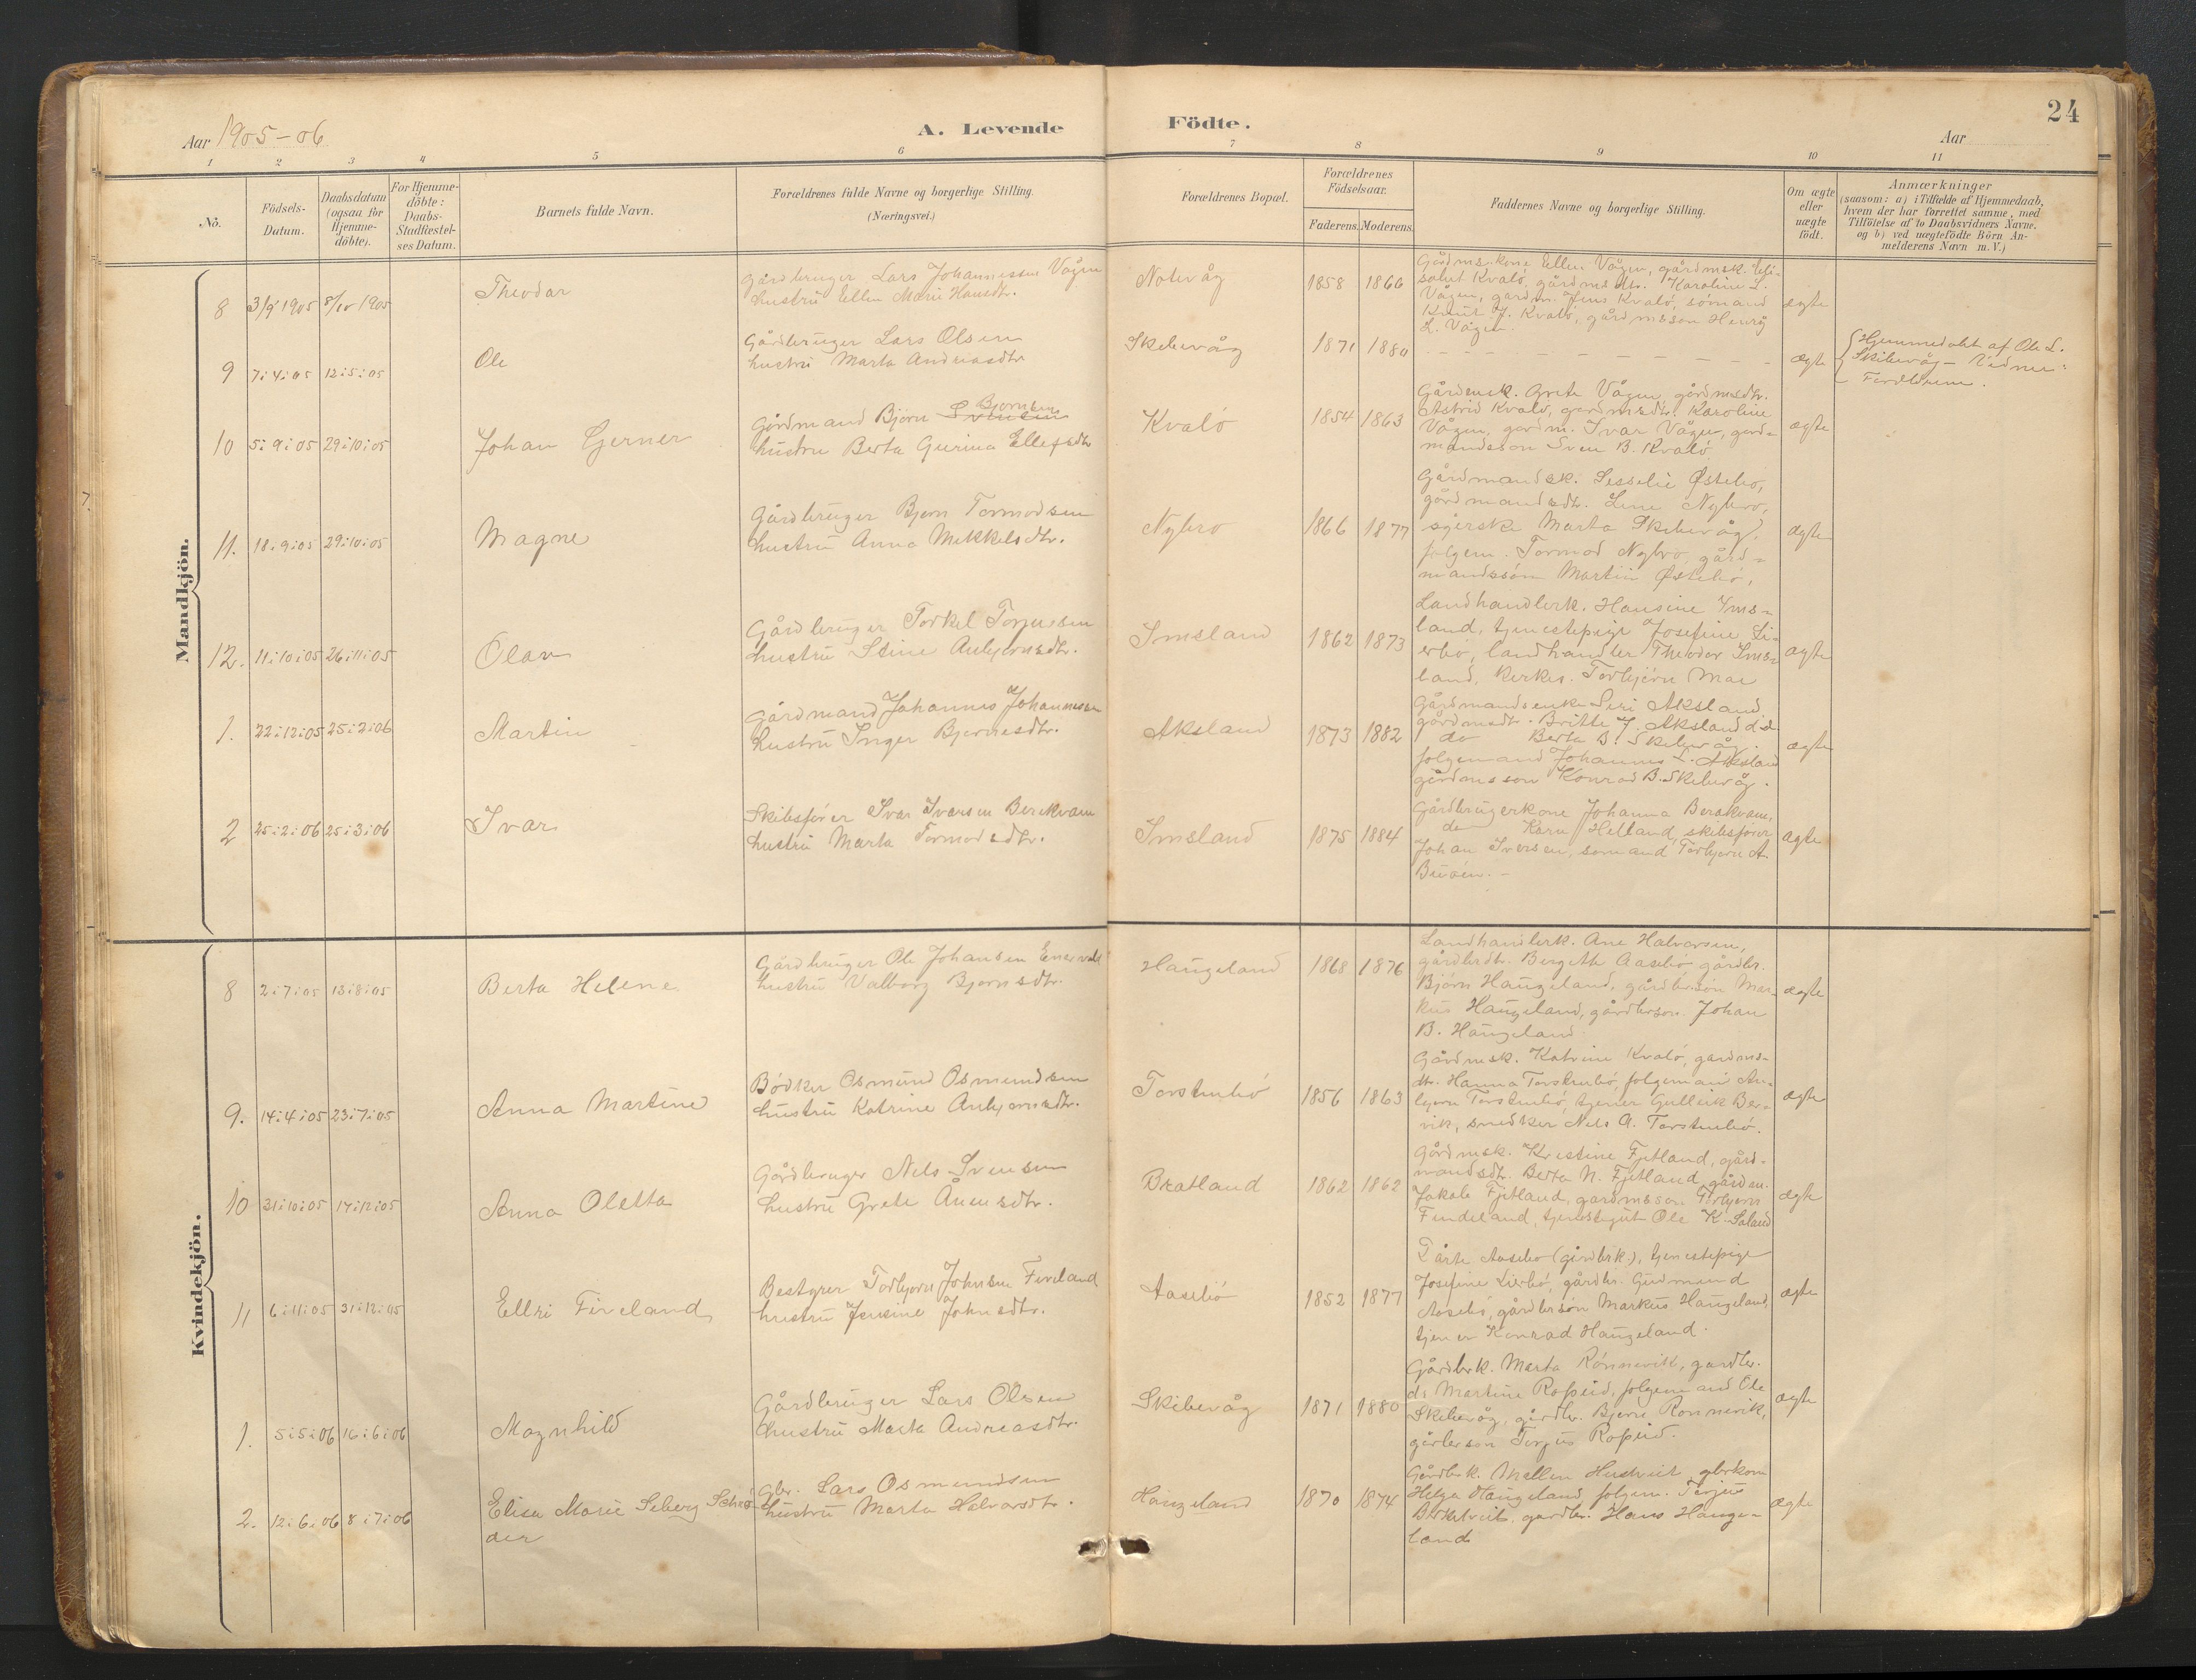 24
Aar 1905-06
A. Levende
Födte.
Aar
1 2 3 4 5 6 7 8 9 10 11
No.
Födsels-
Datum.
Daabsdatum
(ogsaa for
Hjemme-
döbte).
For Hjemme-
döbte:
Daabs-
Stadfæstel-
ses Datum.
Barnets fulde Navn.
Forældrenes fulde Navne og borgerlige Stilling.
(Næringsvei.)
Forældrenes Bopæl.
Forældrenes
Födselsaar.
Faderens. Moderens.
Faddernes Navne og borgerlige Stilling.
Om ægte
eller
uægte
födt.
Anmærkninger
(saasom: a) i Tilfælde af Hjemmedaab,
hvem der har forrettet samme, med
Tilföielse af to Daabsvidners Navne.
og b) ved uægtefödte Börn An-
melderens Navn m. V.)
Mandkjön.
8 3/9 1905 8/10 1905 Theodor
Gårdbruger Lars Johannessen Vågen
hustru Ellen Marie Hansdtr.
1858 1866
Gårdmskone Ellen Vågen, gårdmsk. Eli-
sabet Kvalö, gårdmsdtr. Karoline L.
Vågen, gardm. Jens Kvalö, sömand
Knut J. Kvalö, gårdmsson Henrÿ
L. Vågen.
ægte
9 7:4:05 12:5:05 Ole
Gårdbruger Lars Olsen
hustru Marta Andreasdtr
Skibevåg 1871 1880
ægte
Hjemmedöbt af Ole L.
Skibevåg - Vidner:
Forældrene.
10 5:9:05 29:10:05 Johan Gerner
Gårdmand Björn Svensen Bjornsen
hustru Berta Gurina Ellefsdtr
Kvalö 1854 1863
Gårdmsk. Grete Vågen, gårdmsdtr.
Astrid Kvalö, gardmsdtr. Karoline
Vågen, gardm. Ivar Vågen, gard-
mandsson Sven B. Kvalö
ægte
11. 18:9:05 29:10:05 Magne
Gårdbruger Bjorn Tormodsen
hustru Anna Mikkelsdtr.
Nybro 1866 1877
Gårdmandsk. Sesselie Østebo,
gårdmandsdtr. Line Nybro,
syerske Marta Skibevåg,
folgem. Tormod Nybro, gård-
mandssön Martin Østebö,
ægte
12. 11:10:05 26:11:05 Olav
Gårdbruger Torkel Torjussen
hustru Stine Anbjornsdtr.
Imsland 1862 1873
Landhandlerk. Hansine Ims-
land, tjenestepige Josefine Li-
erbo, landhandler Theodor Ims-
land, kirkes. Torbjörn Mæe
ægte
1. 22:12:05 25:2:06 Martin
Gårdmand Johannes Johannesen
hustru Inger Bjornesdtr.
Aksland 1873 1882
Gårdmandsenke Seri Aksland
gårdmsdtr. Britte J. Aksland
do Berta B. Skibevåg.
folgemand Johannes L. Aksland
gårdmsson Konrad B. Skibevåg.
ægte
2 25:2:06 25:3:06 Ivar
Skibsförer Ivar Iversen Berekvam
hustru Marta Tormodsdtr.
Imsland 1875 1884
Gårdbrugerkone Johanna Berekvam,
do Karn Helland, skibsförer
Johan Iversen, somand Torbjorn A
ægte
Kvindekjön.
8 2:7:05 13:8:05 Berta Helene
Gårdbruger Ole Johansen
hustru Valborg Bjornsdtr.
Haugeland 1868 1876
Landhandlerk. Ane Halvorsen,
gårdbrdtr. Bergitte Aasebö gårdbr.
Björn Haugeland, gårdbrsön Mar-
kus Haugeland, gårdbrson. Johan
B. Haugeland
ægte
9. 14:4:05 23:7:05 Anna Martine
Bödker Osmund Osmundsen
hustru Katrine Anbjornsdtr.
Torstenbö 1856 1863
Gårdmsk. Katrine Kvalö, gardms-
dtr. Hanna Torstenbö, folgemand An-
bjorn Torstenbö, tjener Gulleik Ber-
vik, snedker Nils A. Torstenbö.
ægte
10 31:10:05 17:12:05 Anna Oletta
Gårdbruger Nils Svensen
hustru Grete Åmundsdtr.
Bratland 1862 1862
Gårdmsk. Kristine Fjetland, gård-
mandsdtr. Berta N. Fjetland, gårdm.
Jakob Fjetland, gardmsson. Torbjorn
Findeland, tjenestegut Ole K. Saland
ægte
11 6:11:05 31:12:05 Ellri Fireland
Bestyrer Torbjorn Johnsen Fireland
hustru Jensine Johnsdtr.
Aasebö 1852 1877
Dårte Aasebo (gårdbrk.), tjenestepige
Josefine Lierbö, gårdbr. Gudmund
Aasebö, gårdbrsön Markus Haugeland,
tjener Konrad Haugeland.
ægte
1. 5:5:06 16:6:06 Magnhild
Gårdbruger Lars Olsen
hustru Marta Andreasdtr.
Skibevåg 1871 1880
Gårdbrk. Marta Rönnevik, gardbr.
dr. Martine Ropeid, folgemand Ole
Skibevåg, gårdbr. Bjorn Ronnevik,
gårbrson Torjus Ropeid.
ægte
2. 12:6:06 8:7:06 Elisa Marie Seberg Schrö
der
Gbr. Lars Osmundsen
hustru Marta Halvorsdtr.
Haugeland 1870 1874
Gårdbrk. Mallen Hustveit, gbrkone
Helga Haugeland folgem. Torjus
gardbr. Hans Hauge-
land
ægte